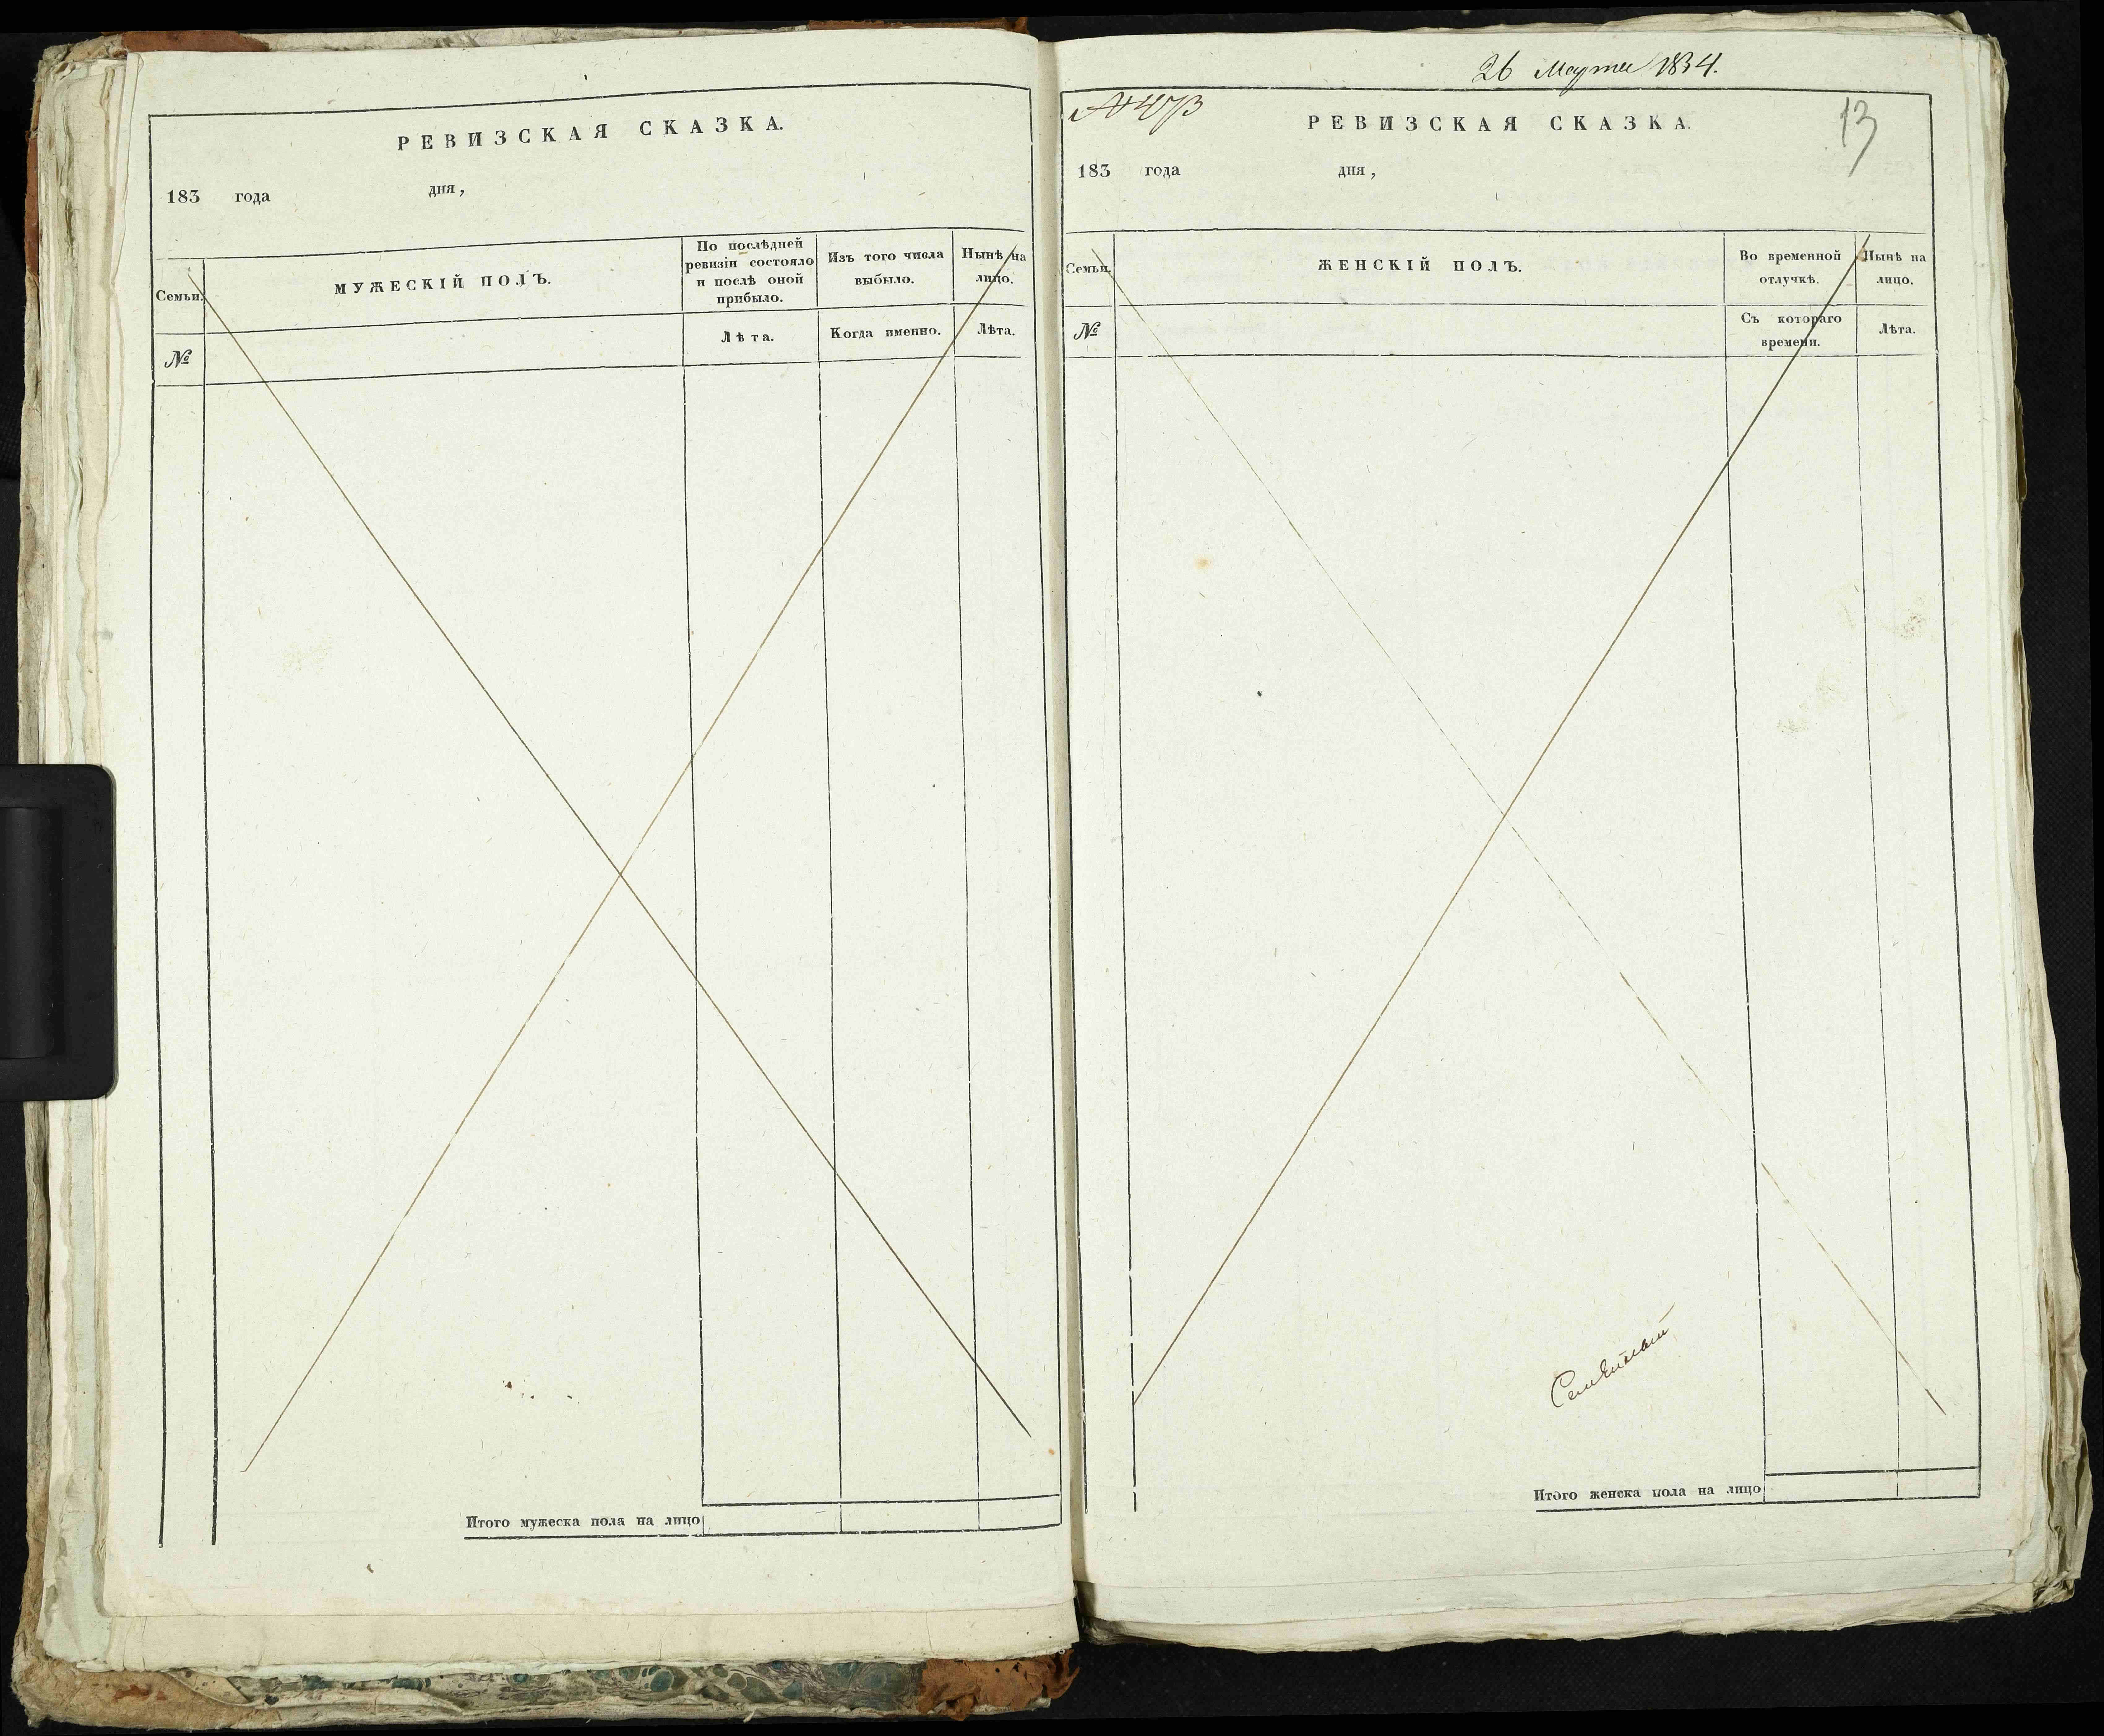 РЕВИЗСКАЯ СКАЗКА.
183 года дня,
Семьи.
МУЖЕСКІЙ ПОЛЪ.
По послѣдней ревизіи состояло и послѣ оной прибыло.
Изъ того числа выбыло.
Нынѣ на лицо.
№
Лѣта.
Когда именно.
Лѣта.
Итого мужеска пола на лицо
26 Марта 1834.
№ 473
13
РЕВИЗСКАЯ СКАЗКА.
183 года дня,
Семьи.
ЖЕНСКІЙ ПОЛЪ.
Во временной отлучкѣ.
Нынѣ на лицо.
№
Съ котораго времени.
Лѣта.
Итого женска пола на лицо